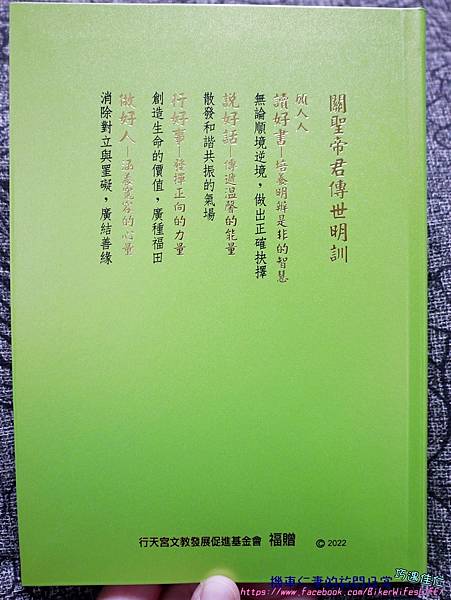 關聖帝君傳世明訓
願人人
讀好書—培養明辨是非的智慧
無論順境逆境，做出正確抉擇
說好話—傳遞溫馨的能量
散發和諧共振的氣場
行好事—發揮正向的力量
創造生命的價值，廣種福田
做好人—涵養寬容的心量
消除對立與罣礙，廣結善緣
行天宮文教發展促進基金會 福贈 ©2022
巧遇佳人
機車仁妻的旅門日常
https://www.facebook.com/BikerWifesLife/